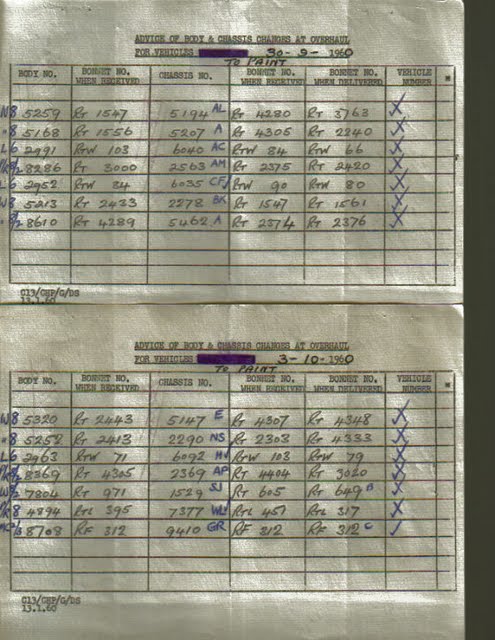 ADVICE OF BODY & CHASSIS CHANGES AT OVERHAUL
FOR VEHICLES 30-9-1960
TO PAINT
BODY NO. BONNET NO. WHEN RECEIVED CHASSIS NO. BONNET NO. WHEN RECEIVED BONNET NO. WHEN DELIVERED VEHICLE NUMBER
W8 5259 RT 1547 5194 AL RT 4280 RT 3763 X
"8 5168 RT 1556 5207 A RT 4305 RT 2240 X
L6 2991 RTW 103 6040 AC RTW 84 RTW 66 X
8286 RT 3000 2563 AM RT 2375 RT 2420 X
L6 2952 RTW 84 6035 CF RTW 90 RTW 80 X
W8 5213 RT 2433 2278 BK RT 1547 RT 1561 X
8610 RT 4289 5462 A RT 2374 RT 2376 X
G13/GHP/G/DS
13.1.60
ADVICE OF BODY & CHASSIS CHANGES AT OVERHAUL
FOR VEHICLES 3-10-1960
TO PAINT
BODY NO. BONNET NO. WHEN RECEIVED CHASSIS NO. BONNET NO. WHEN RECEIVED BONNET NO. WHEN DELIVERED VEHICLE NUMBER
W8 5320 RT 2443 5147 E RT 4307 RT 4348 X
"8 5252 RT 2413 2290 NS RT 2303 RT 4333 X
L6 2963 RTW 71 6092 RTW 103 RTW 79 X
8369 RT 4305 2369 AP RT 4404 RT 3020 X
7804 RT 971 1529 SJ RT 605 RT 649 B X
8 4894 RTL 395 7377 WL RTL 451 RTL 317 X
8708 RF 312 9410 GR RF 312 RF 312 C ✓
G13/GHP/G/DS
13.1.60